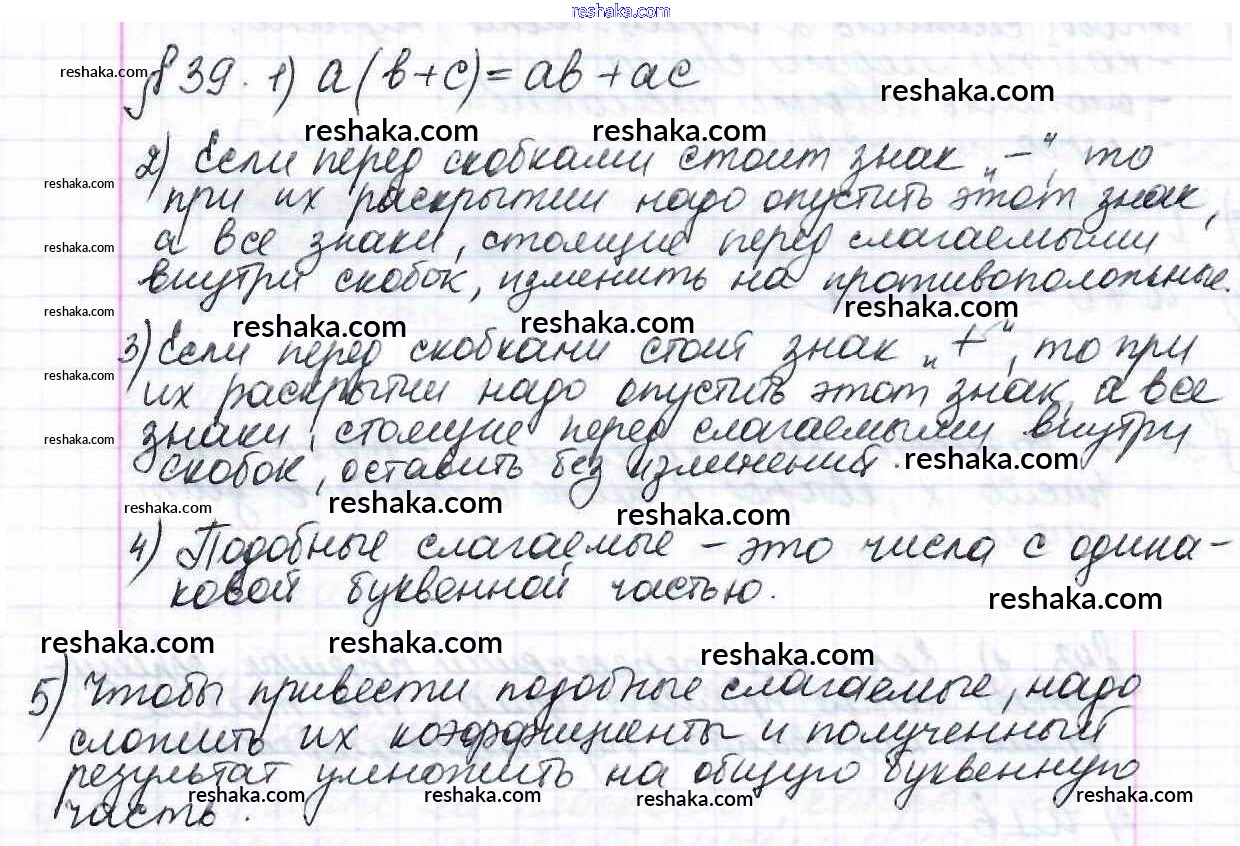 reshaka.com
§ 39. 1) a(b+c)=ab+ac
reshaka.com
reshaka.com
reshaka.com reshaka.com
2) Если перед скобками стоит знак „-“, то
reshaka.com
при их раскрытии надо опустить этот знак,
а все знаки, стоящие перед слагаемыми
reshaka.com
внутри скобок, изменить на противоположные.
reshaka.com
reshaka.com reshaka.com reshaka.com
3) Если перед скобками стоит знак „+“, то при
reshaka.com
их раскрытии надо опустить этот знак, а все
знаки, стоящие перед слагаемыми внутри
reshaka.com
скобок, оставить без изменений.
reshaka.com
reshaka.com
reshaka.com reshaka.com
4) Подобные слагаемые – это числа с одина-
ковой буквенной частью.
reshaka.com
reshaka.com reshaka.com reshaka.com
5) Чтобы привести подобные слагаемые, надо
сложить их коэффициенты и полученный
результат умножить на общую буквенную
часть.
reshaka.com reshaka.com reshaka.com reshaka.com